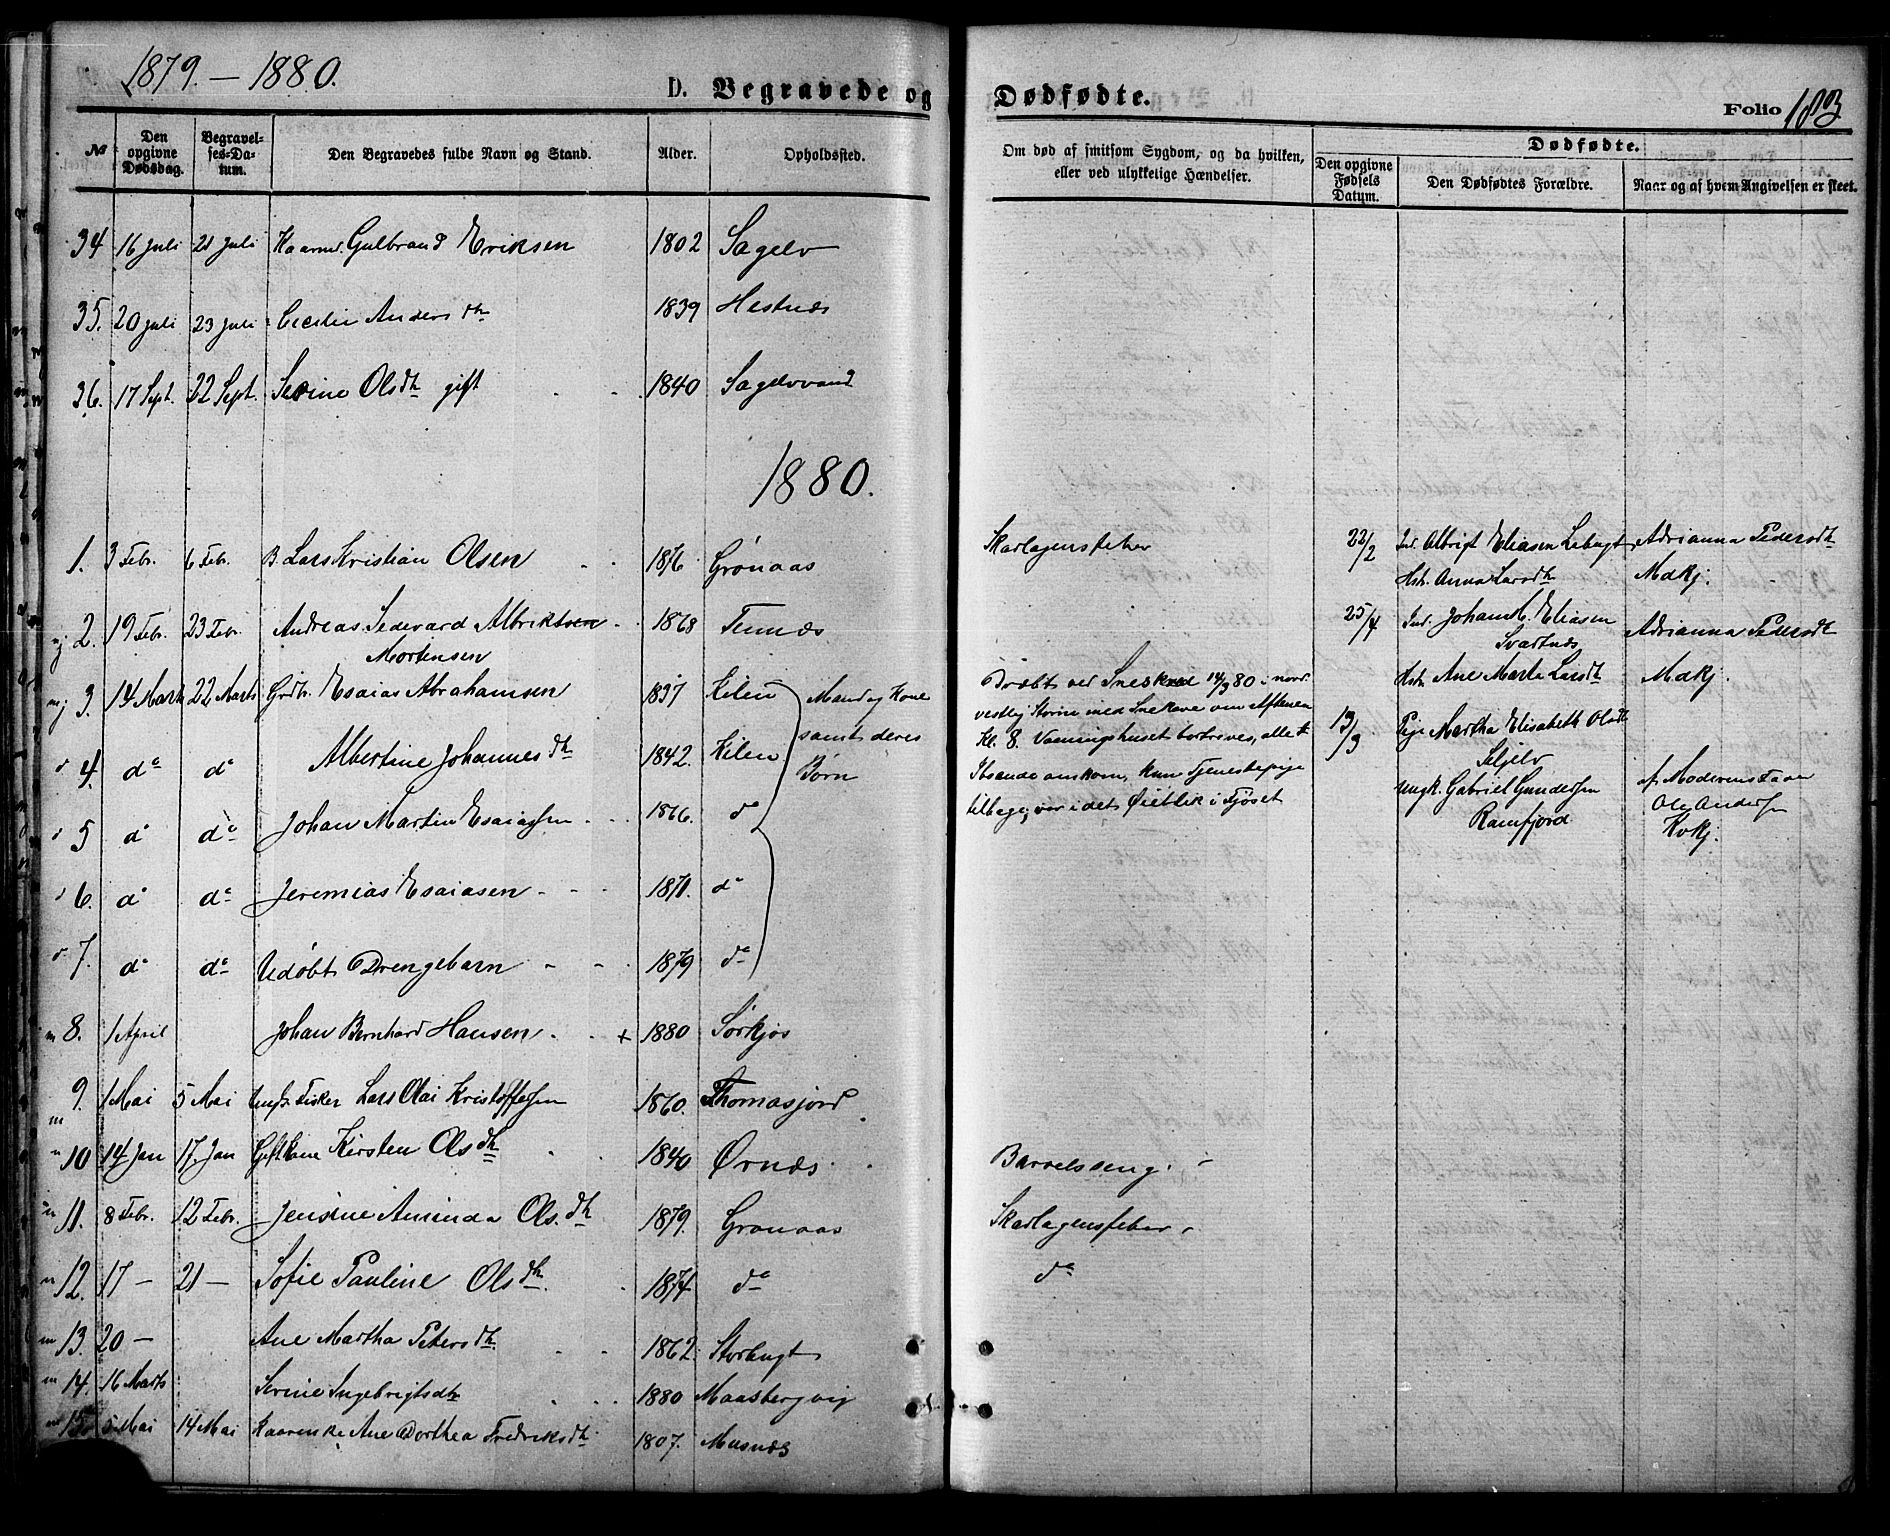 1879. – 1880.
D. Begravede og Dødfødte.
Folio 183
№ Den opgivne Dødsdag. Begravelses-Datum. Den Begravedes fulde Navn og Stand. Alder. Opholdssted. Om død af smitsom Sygdom, og da hvilken, eller ved ulykkelige Hændelser. Dødfødte. Den opgivne Fødsels Datum. Den Dødfødtes Forældre. Naar og af hvem Angivelsen er skeet.
34 16 Juli 21 Juli Kaarmd. Gulbrand Eriksen 1802 Sagelv
35. 20 Juli 23 Juli Cecilie Anders dtr 1839 Hestnæs
36. 17 Sept. 22 Sept. Serine Olsdtr gift 1840 Sagelvvand
1880.
1. 3 Febr. 6 Febr. B. Lars Kristian Olsen 1876 Grønaas Skarlagensfeber
2. 19 Febr. 23 Febr. Andreas Sedevard Albriktsen
Mortensen 1868 Tennæs
3. 14 Marts 22 Marts Grdbr. Esaias Abrahamsen 1837 Kilen
4. do do Albertine Johannesdtr 1842. Kilen
Mand og Kone
samt deres
Børn
5 do do Johan Martin Esaiassen 1866. do
6. do do Jeremias Esaiasen 1871. do
7. do do Udøbt Drengebarn 1879 do
8. 1 April Johan Bernhard Hansen + 1880 Sørkjos
9. 1 Mai 5 Mai Ungk. Fisker Lars Olai Kristoffersen 1860. Thomasjord
10 14 Jan 17. Jan Gift Kone Kirsten Olsdtr 1840 Ørnæs Barselseng
11. 8 Febr. 12 Febr. Jensine Aminda Ols.dtr 1879. Grønaas Skarlagensfeber
12. 17 – 21 – Sofie Pauline Olsdtr 1874 do do
13. 20 – Ane Martha Petersdtr 1862. Storbugt
14. 16 Marts Serine Ingebrigtsdtr 1880 Maasbergvig
15. 5 Mai 14 Mai Kaarenke Ane Dorthea Fredriksdtr 1807. Musnæs
Dræbt ved Sneskred 14/3 80 i nord
vestlig Storm med Snekave om Aftenen
Kl. 8. Vaaningshuset bortreves, alle
Iboende omkom, kun Tjenestepige
tilbage, var i det Øieblik i Fjøset
22/2 Ind. Albrigt Eliasen Lebugt Adrianna Pedersdtr
Hstr. Anna Larsdtr Mdkj.
25/4 Ind. Johan C. Eliasen
Svartnæs Adrianna Pedersdtr
Hstr. Ane Marta Larsdtr Mdkj
13/9 Pige Martha Elisabeth Olsdtr
Seljelv
Ungk. Gabriel Gundersen af Moderens Fader
Ramfjord Ole Andersen
Kvkj.